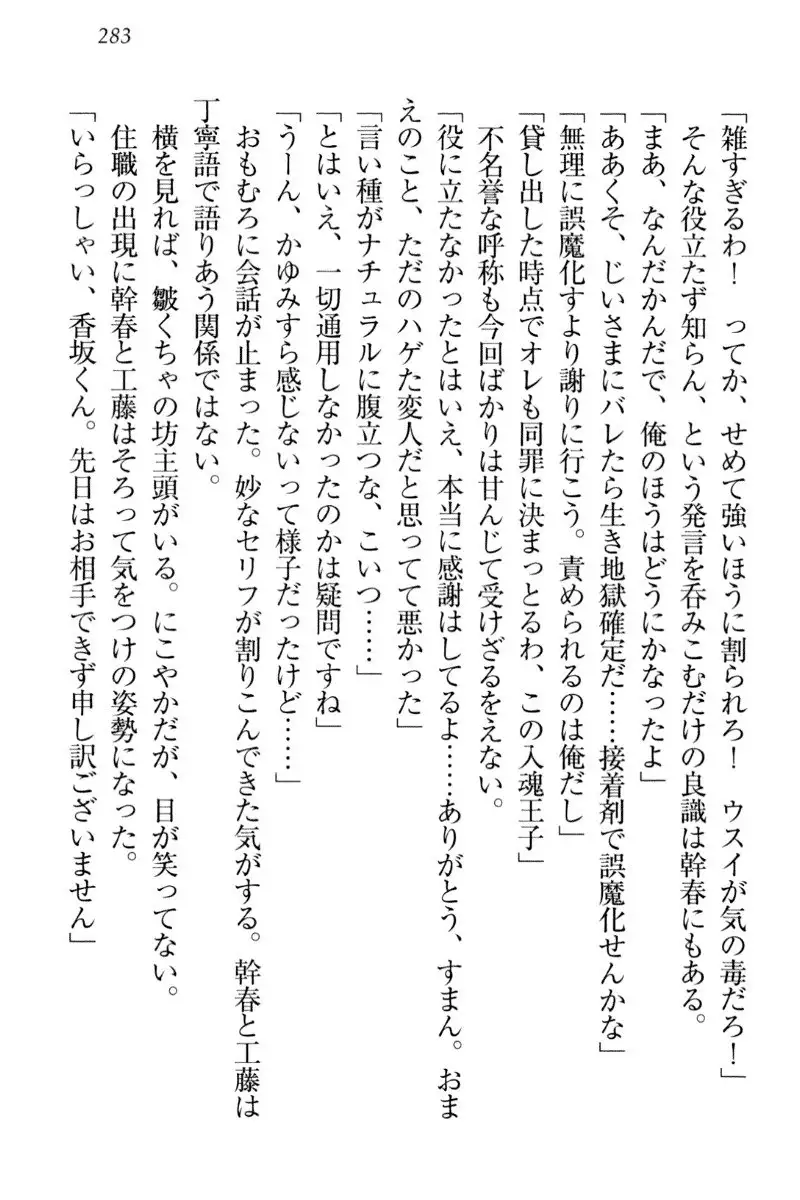 283
「雑すぎるわ!　ってか、せめて強いほうに割られろ!　ウスイが気の毒だろ!」
そんな役立たず知らん、という発言を呑みこむだけの良識は幹春にもある。
「まあ、なんだかんだで、俺のほうはどうにかなったよ」
「ああくそ、じいさまにバレたら生き地獄確定だ……接着剤で誤魔化せんかな」
「無理に誤魔化すより謝りに行こう。責められるのは俺だし」
「貸し出した時点でオレも同罪に決まっとるわ、この入魂王子」
不名誉な呼称も今回ばかりは甘んじて受けざるをえない。
「役に立たなかったとはいえ、本当に感謝はしてるよ……ありがとう、すまん。おま
えのこと、ただのハゲた変人だと思ってて悪かった」
「言い種がナチュラルに腹立つな、こいつ……」
「とはいえ、一切通用しなかったのかは疑問ですね」
「うーん、かゆみすら感じないって様子だったけど……」
おもむろに会話が止まった。妙なセリフが割りこんできた気がする。幹春と工藤は
丁寧語で語りあう関係ではない。
横を見れば、皺くちゃの坊主頭がいる。にこやかだが、目が笑ってない。
住職の出現に幹春と工藤はそろって気をつけの姿勢になった。
「いらっしゃい、香坂くん。先日はお相手できず申し訳ございません」